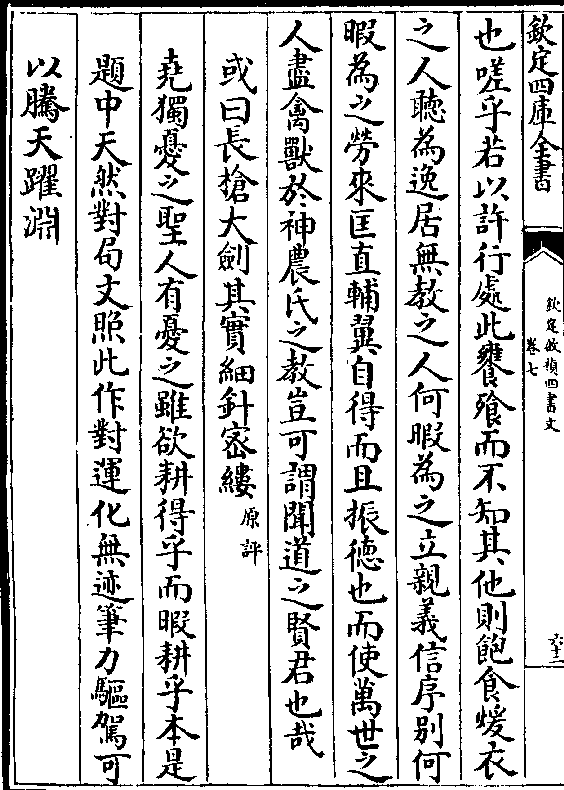 欽定四庫全書
欽定啟禎四書文
卷七
六十二
也嗟乎若以許行處此饔飱而不知其他則飽食煖衣
之人聽為逸居無教之人何暇為之立親義信序别何
暇為之勞來匡直輔翼自得而且振德也而使萬世之
人盡禽獸於神農氏之教豈可謂聞道之賢君也哉
或曰長槍大劍其實細針宻縷原評
堯獨憂之聖人有憂之雖欲耕得乎而暇耕乎本是
題中天然對局文照此作對運化無迹筆力驅駕可
以騰天躍淵